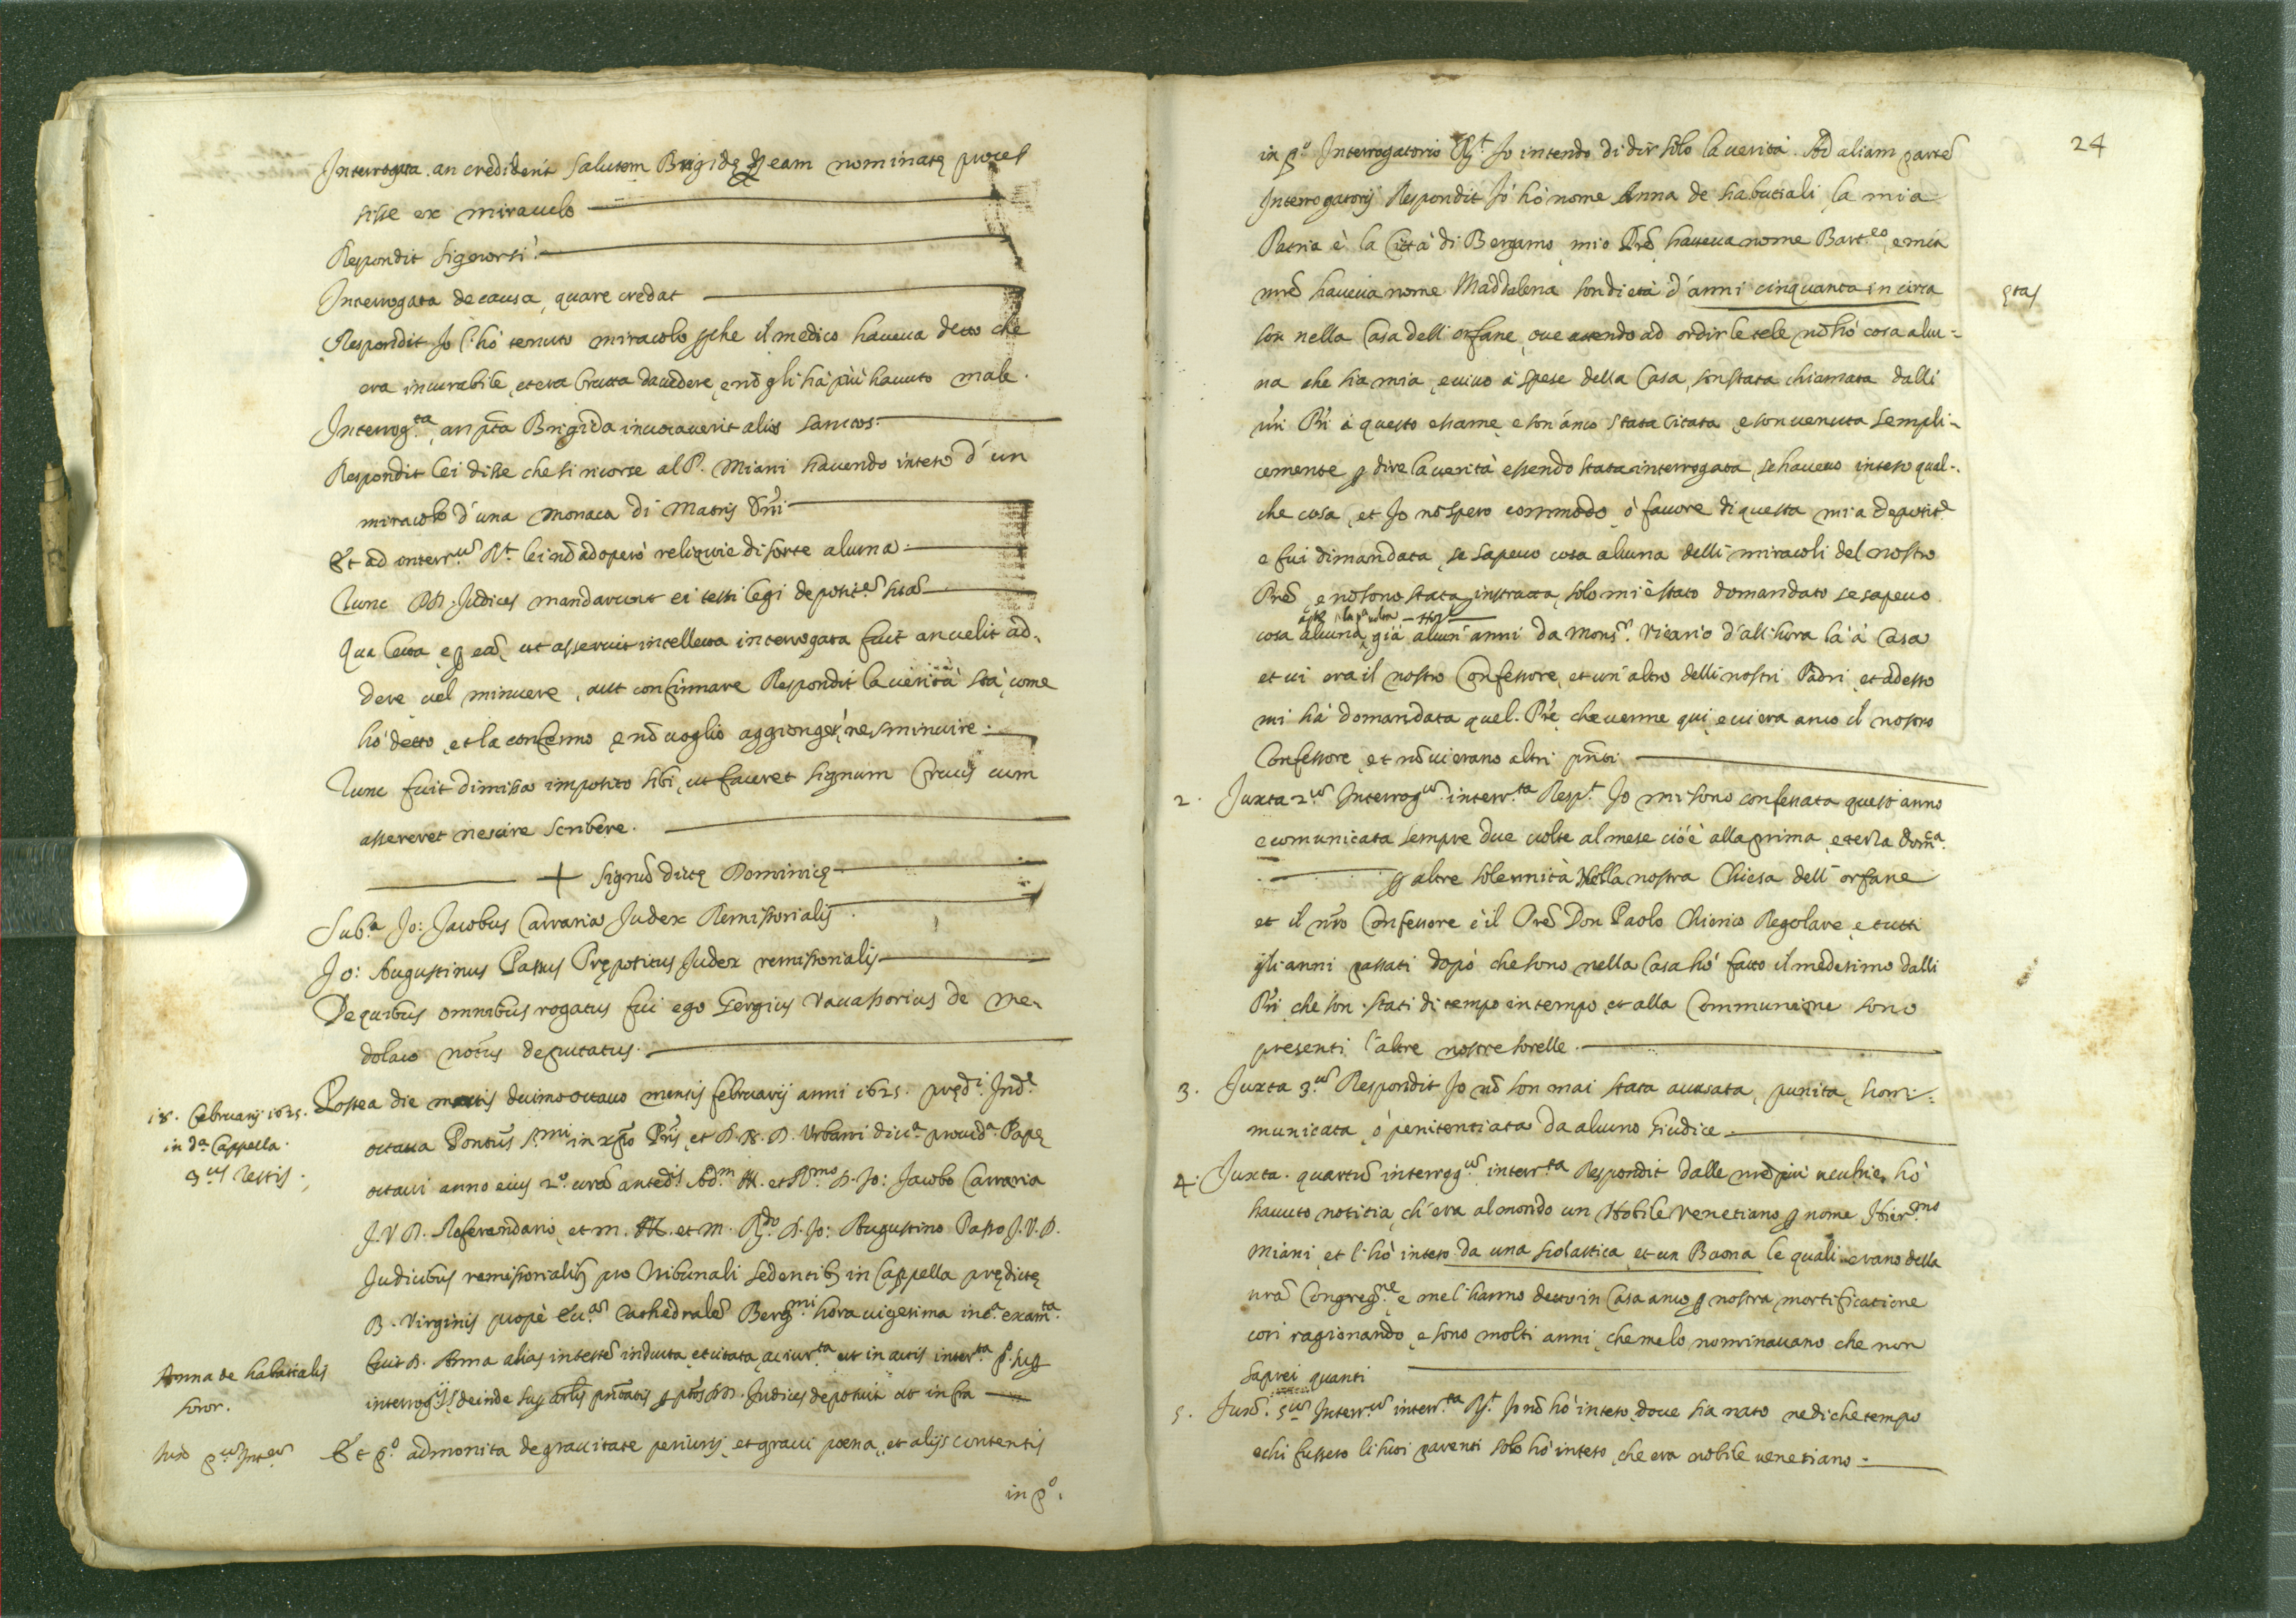 Interrogata an crediderit salutem Brigidę per eam nominatę proces
sisse ex miraculo
Respondit Signorsi.
Interrogata de causa, quare credat
Respondit Jo l'hò tenuto miracolo perche il medico haueua detto che
era incurabile, et era brutta da uedere, e nō gli hà più hauuto male.
Interrog.ta, an pta Brigida inuocauerit alios sanctos:
Respondit lei disse che si ricorse al P. Miani hauendo inteso d'un
miracolo d'una monaca di Matris Dni
Et ad interr.m Rt. lei nō adoperò reliquie di sorte alcuna.
Tunc DD. Judices mandarunt ei testi legi deposit.em suā
Qua lecta, e per eā, ut asseruit intellecta interrogata fuit an uelit ad=
dere uel minuere, aut confirmare Respondit la uerità stà, come
hò detto, et la confermo, e nō uoglio aggionger, ne sminuire.
Tunc fuit dimissa imposito sibi, ut faceret signum Crucis cum
assereret nescire scribere.
+ Signū dictę Dominicę
Sub.a Jo: Jacobus Carraria Judex Remissorialis.
Jo: Augustinus Passus Prępositus Judex remissorialis
De quibus omnibus rogatus fui ego Gergius Vauassorius de Me=
dolaco notus deputatus.
18. Februarij 1625.
in d.a Cappella.
3.us Testis.
Postea die martis decimo octauo mensis februarij anni 1625. pręd.i Ind.e
octaua Pontus S.mi in xpo Pris et D. N. D. Urbani diu.a prouid.a Papę
octaui anno eius 2.o corā anted.is Ad.m Ill. et R.mo D. Jo: Jacobo Carraria
J. V. D. Referendario, et m. Ill. et m. R.do D. Jo: Augustino Passo J. V. D.
Judicibus remissorialib9 pro tribunali sedentib9 in Cappella prędictę
B. Virginis propè Ecc.am Cathedralē Berg.mi hora uigesima inc.a exam.ta
Anna de habatialis
soror.
fuit D. Anna alias in testē inducta, et citata, ac iur.ta ut in actis inter.ta p. sup
interrog.ijs, deinde sup artlis pntatis per ptos DD. Judices deposuit ut infra
Iux p.m Int.m
Et p.o admonita de grauitate periurij, et graui poena, et alijs contentis
in p.o
24
in p.o Interrogatorio Rt. Jo intendo di dir solo la uerità. Ad aliam partē
Interrogatorij Respondit Jo hò nome Anna de habatiali, la mia
Patria è la Città di Bergamo, mio Prē haueua nome Bart.eo, e mia
mrē haueua nome Maddalena son di età d'anni cinquanta in circa
ętas
son nella Casa dell'orfane, oue attendo ad ordir le tele, nō hò cosa alcu=
na che sia mia, e uiuo à spese della Casa, son stata chiamata dalli
nri Pri à questo esame, e son anco stata citata, e son uenuta sempli=
cemente per dire la uerità essendo stata interrogata, se haueuo inteso qual=
che cosa, et Jo nō spero commodo, ò fauore di questa mia deposit.e
e fui dimandata, se sapeuo cosa alcuna delli miracoli del nostro
Prē, e nō sono stata instratta, solo mi è stato domandato se sapeuo
la p.a uolta
cosa alcuna, già alcuni anni da Mons.r Vicario d'all'hora là à Casa
et ui era il nostro Confessore, et un'altro delli nostri Padri, et adesso
mi hà domandata quel Prē che uenne qui, e ui era anco il nostro
Confessore, et nō ui erano altri pnti
2. Juxta 2.m Interrog.m interr.ta Resp.t Jo mi sono confessata quest'anno
e comunicata sempre due uolte al mese cioè alla prima, e terza Dom.ca
per altre solennità Nella nostra Chiesa dell'orfane
et il nro Confessore è il Prē Don Paolo Chierico Regolare, e tutti
gli anni passati dopò che sono nella Casa hò fatto il medesimo dalli
Pri, che son stati di tempo in tempo, et alla Communione sono
presenti l'altre nostre sorelle.
3. Juxta 3.m Respondit Jo nō son mai stata accusata, punita, scom=
municata, ò penitentiata da alcuno Giudice.
4. Juxta quartū interrog.m interr.ta Respondit dalle mrē più uecchie, hò
hauuto notitia, ch'era al mondo un Nobile Venetiano per nome Hier.mo
Miani, et l'hò inteso da una scolastica, et un Buona le quali erano della
nrā Congreg.ne, e me l'hanno detto in Casa anco per nostra mortificatione
cosi ragionando, e sono molti anni, che me lo nominauano che non
saprei quanti
5. Juxt. 5.m Interr.m interr.ta Rt. Jo nō hò inteso, doue sia nato ne di che tempo
e chi fussero li suoi parenti solo hò inteso, che era nobile uenetiano.